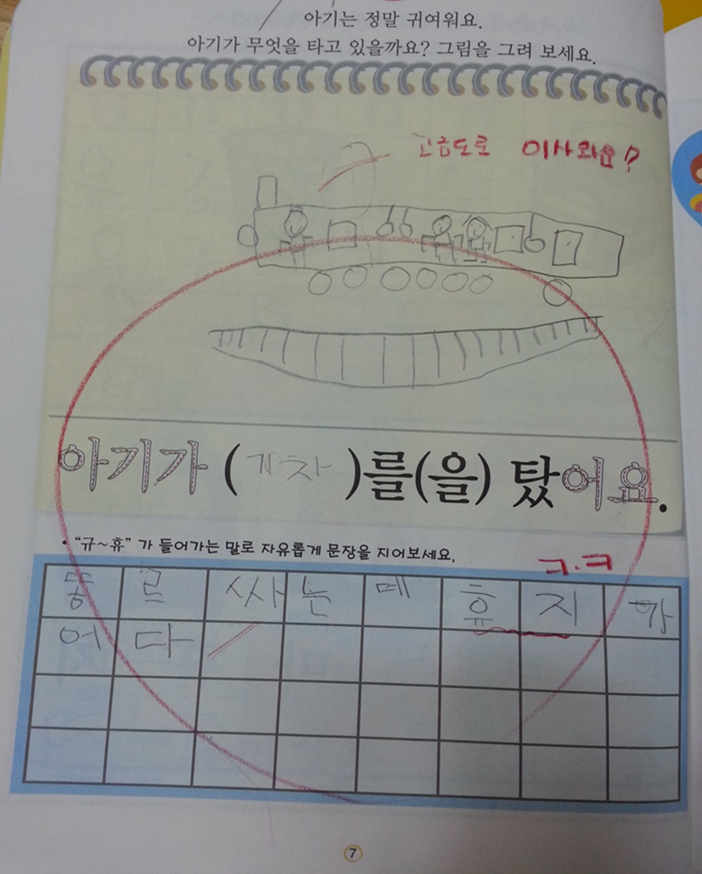 아기는 정말 귀여워요.
아기가 무엇을 타고 있을까요? 그림을 그려 보세요.
고금도로 이사와요?
아기가 ( 기차 )를(을) 탔어요.
• "규~휴" 가 들어가는 말로 자유롭게 문장을 지어보세요.
ㅋ.ㅋ
똥르싸는데휴지가
어다
7